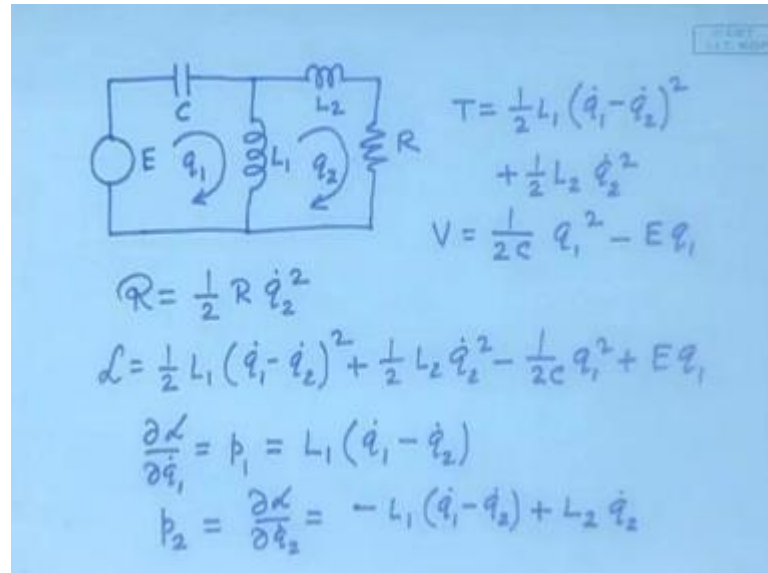 C
L₂
E
q₁
L₁
q₂
R
T = ½ L₁ (q̇₁ - q̇₂)²
+ ½ L₂ q̇₂²
V = 1/2C q₁² - E q₁
ℛ = ½ R q̇₂²
ℒ = ½ L₁ (q̇₁ - q̇₂)² + ½ L₂ q̇₂² - 1/2C q₁² + E q₁
∂ℒ/∂q̇₁ = p₁ = L₁ (q̇₁ - q̇₂)
p₂ = ∂ℒ/∂q̇₂ = - L₁ (q̇₁ - q̇₂) + L₂ q̇₂